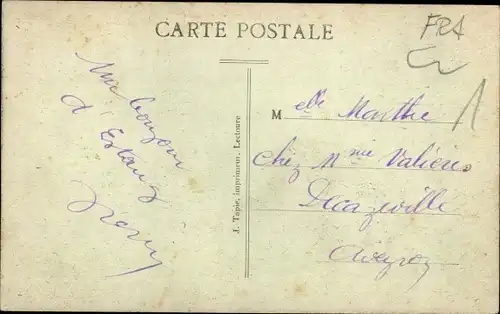 CARTE POSTALE
FRA
Un bonjour
d'Estang
J. Tapie, imprimeur, Lectoure
Melle Marthe
chez Mme Valière
Decazeville
Aveyron